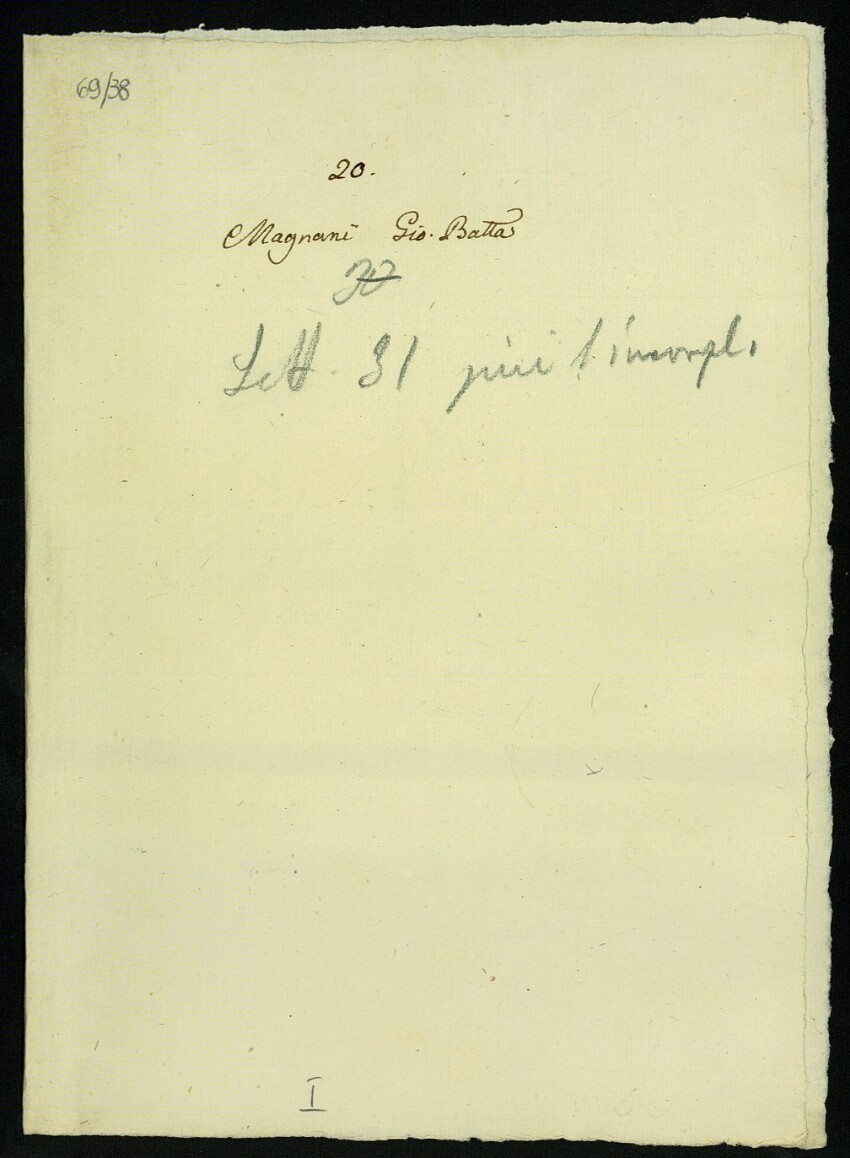 69/38
20.
Magnani Gio. Batta
30
Lett. 31 più 1 incompl.
I